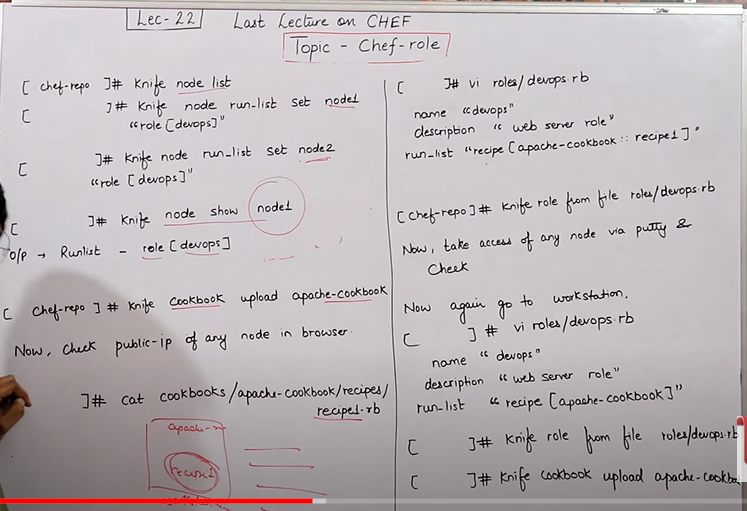 Lec-22 Last Lecture on CHEF
Topic - Chef-role
[ chef-repo ]# Knife node list
[ ]# Knife node run-list set node1
"role [devops]"
[ ]# Knife node run_list set node2
"role [devops]"
[ ]# Knife node show node1
O/P → Runlist - role [devops]
[ Chef-repo ]# Knife cookbook upload apache-cookbook
Now, Check public-ip of any node in browser.
]# cat cookbooks/apache-cookbook/recipes/
recipe1.rb
apache-
recipe1
[ ]# vi roles/devops.rb
name "devops"
description "web server role"
run_list "recipe [apache-cookbook :: recipe1]"
[Chef-repo]# Knife role from file roles/devops.rb
Now, take access of any node via putty &
Check
Now again go to workstation,
[ ]# vi roles/devops.rb
name "devops"
description "web server role"
run_list "recipe [apache-cookbook]"
[ ]# Knife role from file roles/devops.rb
[ ]# Knife cookbook upload apache-cookb